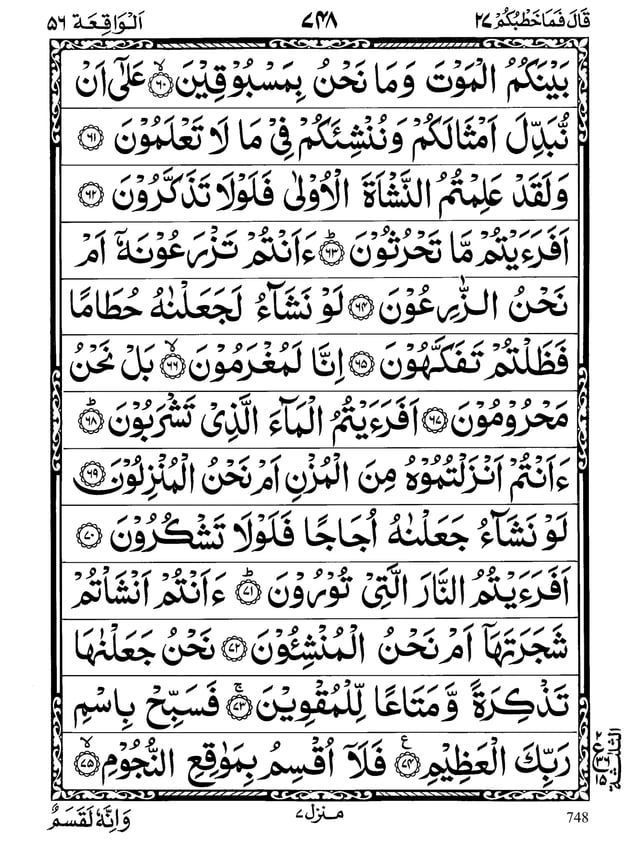 قَالَ فَمَا خَطْبُكُمْ ٢٧ ٧٤٨ اَلْوَاقِعَة ٥٦
بَيْنَكُمُ الْمَوْتَ وَمَا نَحْنُ بِمَسْبُوْقِيْنَ ۙ‏﴿۶۰﴾ عَلٰٓى اَنْ
نُّبَدِّلَ اَمْثَالَكُمْ وَنُنْشِئَكُمْ فِىْ مَا لَا تَعْلَمُوْنَ ﴿۶۱﴾
وَلَقَدْ عَلِمْتُمُ النَّشْاَةَ الْاُوْلٰى فَلَوْلَا تَذَكَّرُوْنَ ﴿۶۲﴾
اَفَرَءَيْتُمْ مَّا تَحْرُثُوْنَ ؕ﴿۶۳﴾ ءَاَنْتُمْ تَزْرَعُوْنَهٗۤ اَمْ
نَحْنُ الزّٰرِعُوْنَ ﴿۶۴﴾ لَوْ نَشَآءُ لَجَعَلْنٰهُ حُطَامًا
فَظَلْتُمْ تَفَكَّهُوْنَ ﴿۶۵﴾ اِنَّا لَمُغْرَمُوْنَ ۙ﴿۶۶﴾ بَلْ نَحْنُ
مَحْرُوْمُوْنَ ﴿۶۷﴾ اَفَرَءَيْتُمُ الْمَآءَ الَّذِىْ تَشْرَبُوْنَ ؕ﴿۶۸﴾
ءَاَنْتُمْ اَنْزَلْتُمُوْهُ مِنَ الْمُزْنِ اَمْ نَحْنُ الْمُنْزِلُوْنَ ﴿۶۹﴾
لَوْ نَشَآءُ جَعَلْنٰهُ اُجَاجًا فَلَوْلَا تَشْكُرُوْنَ ﴿۷۰﴾
اَفَرَءَيْتُمُ النَّارَ الَّتِىْ تُوْرُوْنَ ؕ﴿۷۱﴾ ءَاَنْتُمْ اَنْشَاْتُمْ
شَجَرَتَهَاۤ اَمْ نَحْنُ الْمُنْشِئُوْنَ ﴿۷۲﴾ نَحْنُ جَعَلْنٰهَا
تَذْكِرَةً وَّمَتَاعًا لِّلْمُقْوِيْنَ ۚ﴿۷۳﴾ فَسَبِّحْ بِاسْمِ
رَبِّكَ الْعَظِيْمِ ﴿۷۴﴾ ع فَلَاۤ اُقْسِمُ بِمَوٰقِعِ النُّجُوْمِ ۙ﴿۷۵﴾
الثلثة
وَاِنَّهٗ لَقَسَمٌ منزل ٧ 748